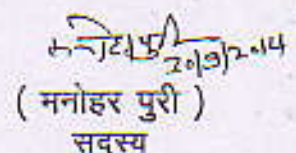 20/9/2014
( मनोहर पुरी )
सदस्य